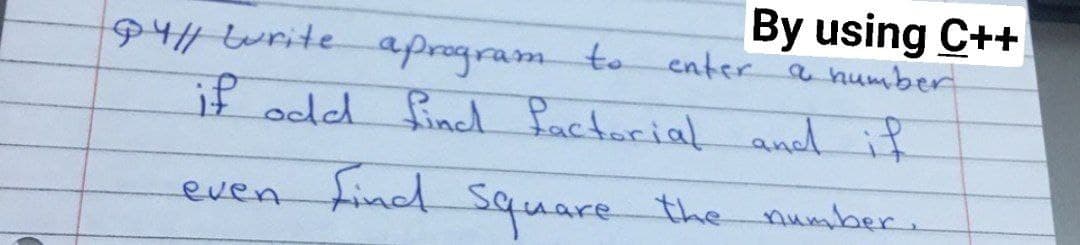 By using C++
Q4// write a program to enter a number
if odd find factorial and if
even find square the number.